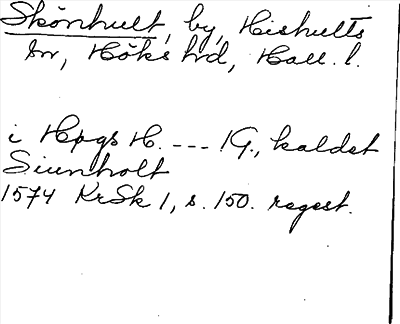 Skönhult, by, Hishults
sn, Höks hd, Hall. l.
i Hpgs H. --- 1G., kaldet
Siunholt
1574 KrSk 1, s. 150. regest.